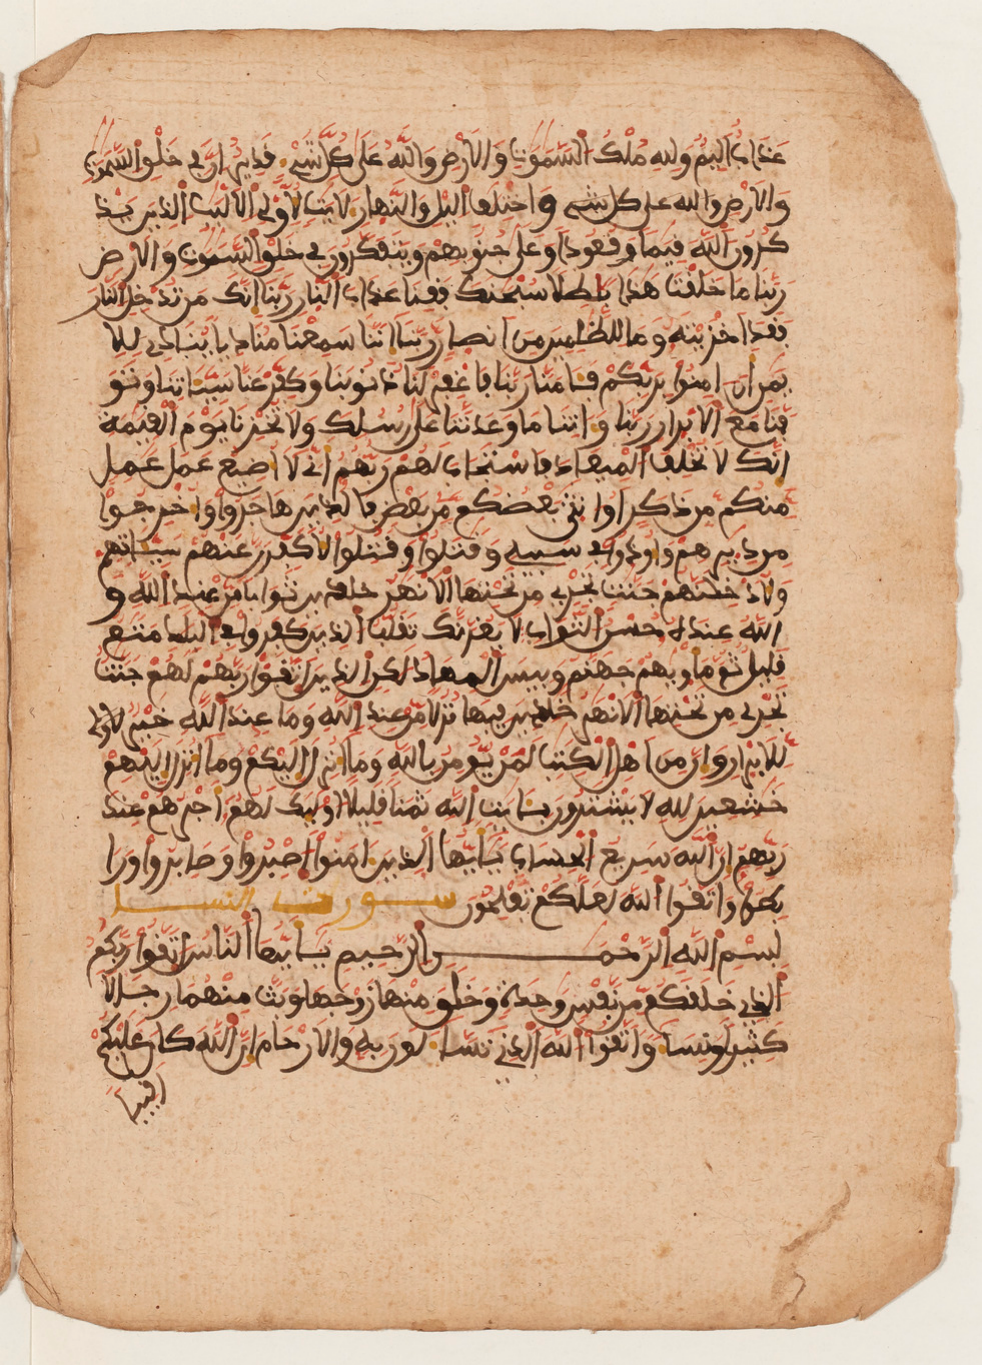 عذاب اليم ولله ملك السموت والارض والله على كل شيء قدير ان في خلق السموت
والارض والله على كل شيء واختلف اليل والنهار لايت لاولي الالبب الذين يذ
كرون الله قيما وقعودا وعلى جنوبهم ويتفكرون في خلق السموت والارض
ربنا ما خلقت هذا بطلا سبحنك فقنا عذاب النار ربنا انك من تدخل النار
فقد اخزيته وما للظلمين من انصار ربنا اننا سمعنا مناديا ينادي للا
يمن ان امنوا بربكم فامنا ربنا فاغفر لنا ذنوبنا وكفر عنا سياتنا وتو
فنا مع الابرار ربنا واتنا ما وعدتنا على رسلك ولا تخزنا يوم القيمة
انك لا تخلف الميعاد فاستجاب لهم ربهم اني لا اضيع عمل عمل
منكم من ذكر او انثى بعضكم من بعض فالذين هاجروا واخرجوا
من ديرهم واوذوا في سبيلي وقتلوا وقتلوا لاكفرن عنهم سياتهم
ولادخلنهم جنت تجري من تحتها الانهر خلدين ثوابا من عند الله و
الله عنده حسن الثواب لا يغرنك تقلب الذين كفروا في البلد متع
قليل ثم ماويهم جهنم وبيس المهاد لكن الذين اتقوا ربهم لهم جنت
تجري من تحتها الانهر خلدين فيها نزلا من عند الله وما عند الله خير
للابرار وان من اهل الكتب لمن يومن بالله وما انزل اليكم وما انزل اليهم
خشعين لله لا يشترون بايت الله ثمنا قليلا اوليك لهم اجرهم عند
ربهم ان الله سريع الحساب يايها الذين امنوا اصبروا وصابروا ورا
بطوا واتقوا الله لعلكم تفلحون سورت النسا
بسم الله الرحمن الرحيم يايها الناس اتقوا ربكم
الذي خلقكم من نفس وحدة وخلق منها زوجها وبث منهما رجالا
كثيرا ونسا واتقوا الله الذي تسا لون به والارحام ان الله كان عليكم
رقيبا